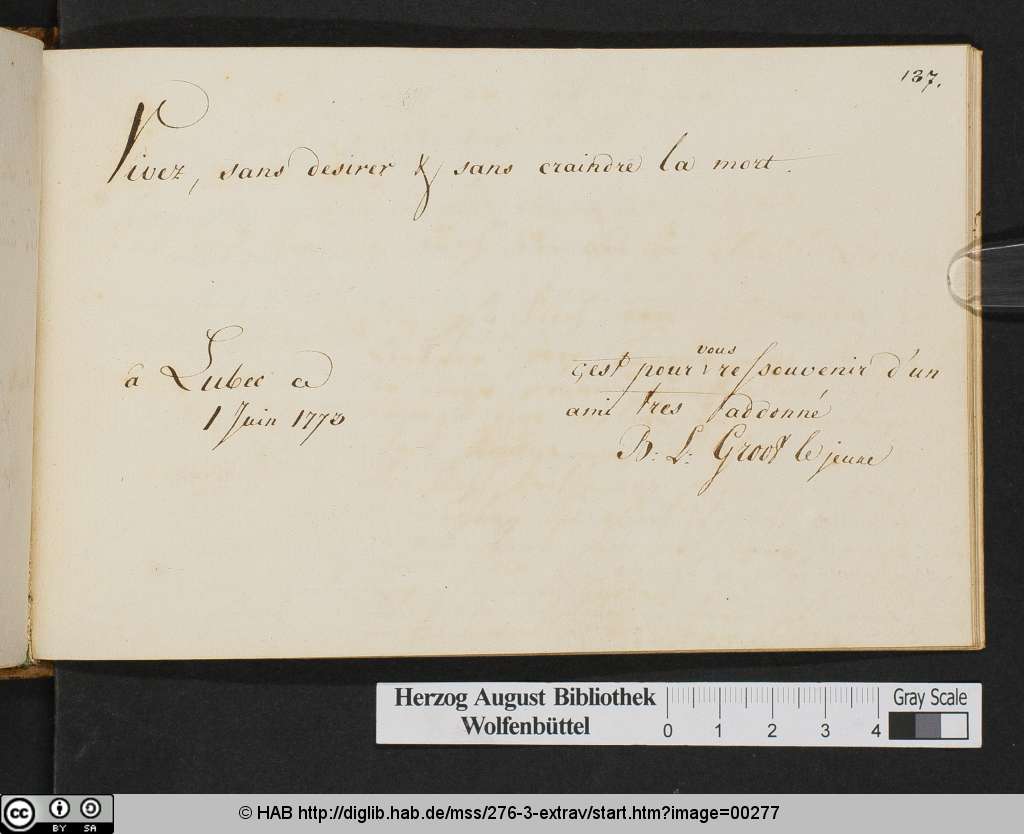 137.
Vivez, sans desirer & sans craindre la mort.
à Lubec ce
1 Juin 1773
vous
c'est pour vre souvenir d'un
ami tres addonné
B: L: Groot le jeune
Herzog August Bibliothek
Wolfenbüttel
0 1 2 3 4
Gray Scale
cc BY SA
© HAB http://diglib.hab.de/mss/276-3-extrav/start.htm?image=00277